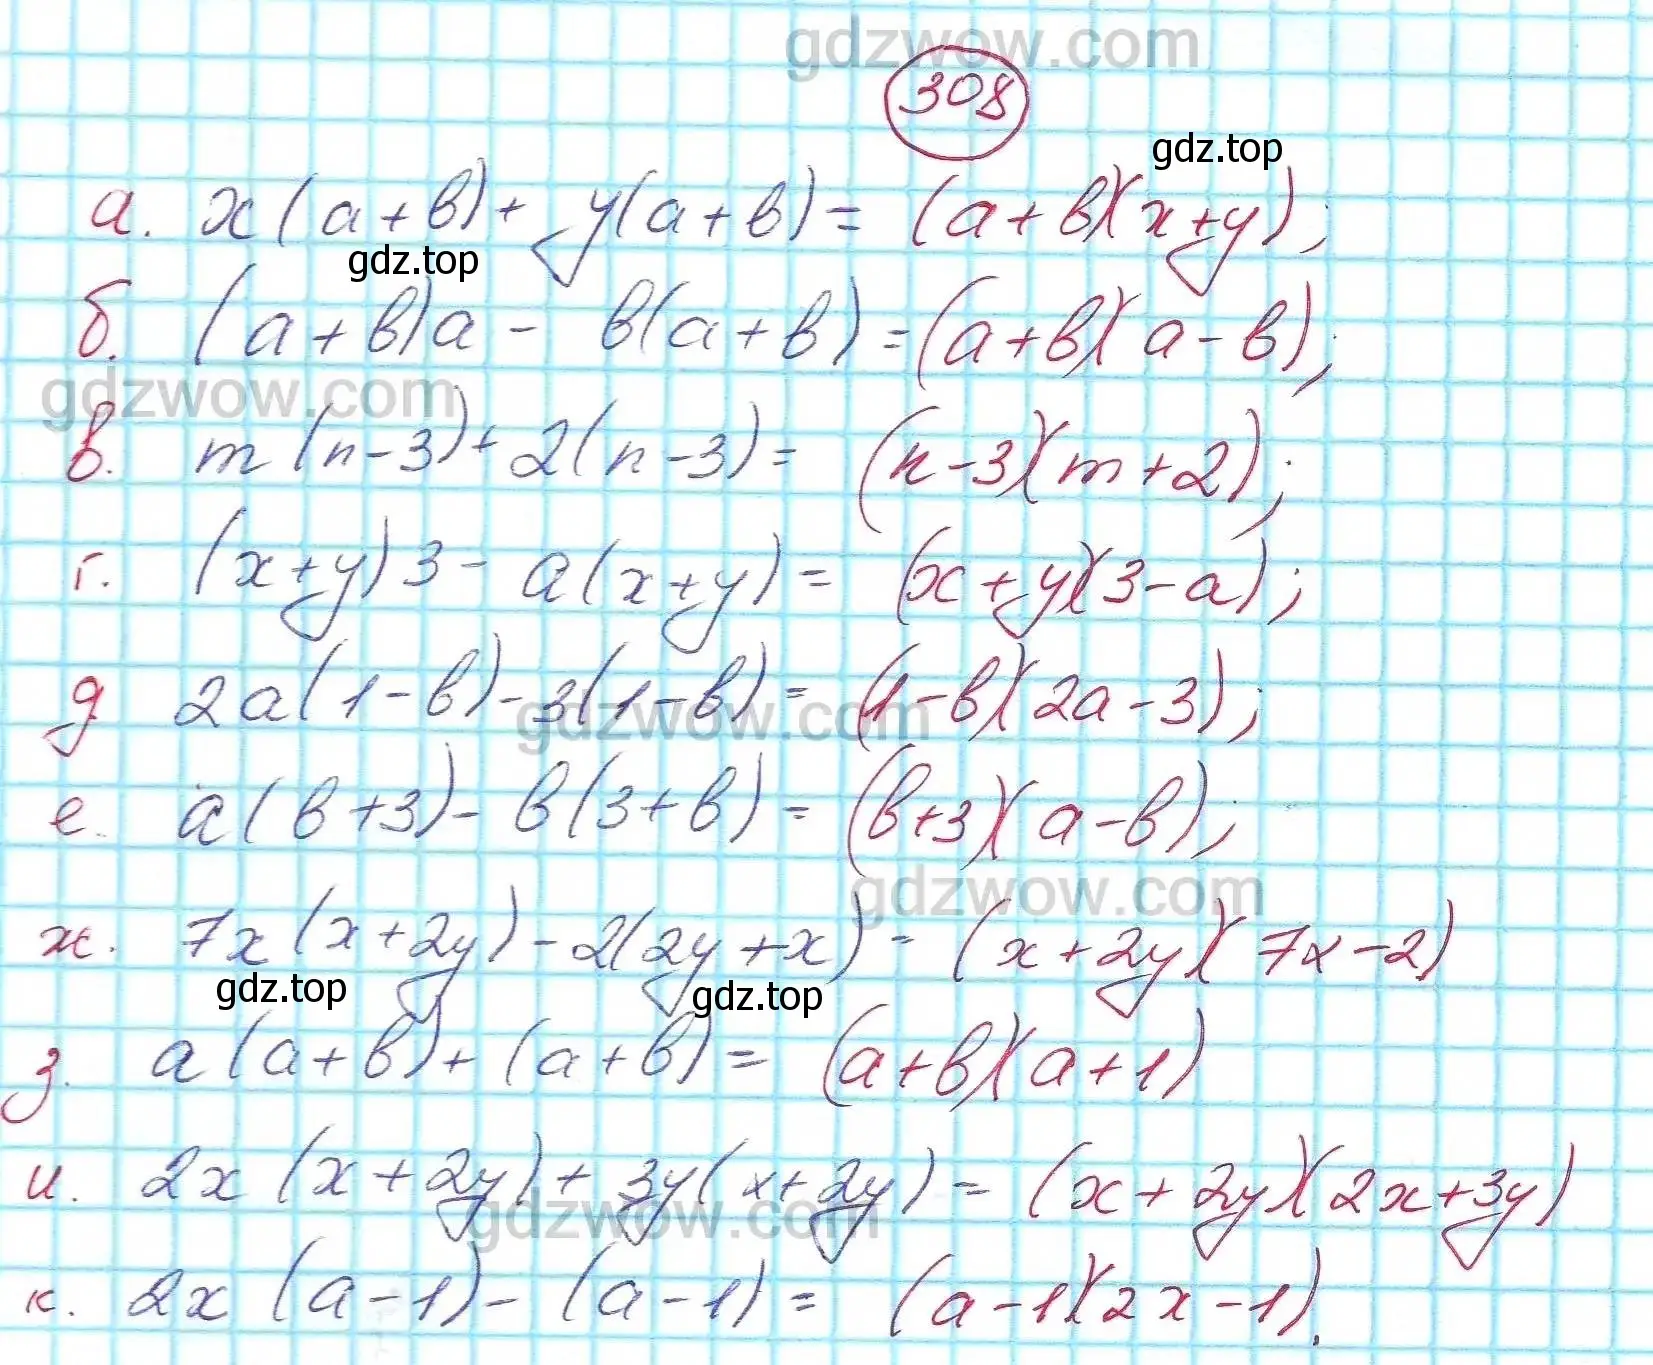 gdzwow.com
308
gdz.top
а. x(a+b)+ y(a+b)= (a+b)(x+y);
gdz.top
б. (a+b)a - b(a+b)=(a+b)(a-b);
gdzwow.com
в. m(n-3)+2(n-3)= (n-3)(m+2);
г. (x+y)3- a(x+y)= (x+y)(3-a);
д 2a(1-b)-3(1-b)= (1-b)(2a-3);
gdzwow.com
е. a(b+3)- b(3+b)= (b+3)(a-b);
gdzwow.com
ж. 7x(x+2y)-2(2y+x)= (x+2y)(7x-2)
gdz.top gdz.top
з. a(a+b)+(a+b)= (a+b)(a+1)
и. 2x(x+2y)+ 3y(x+2y)= (x+2y)(2x+3y)
gdzwow.com
к. 2x(a-1)-(a-1)= (a-1)(2x-1).